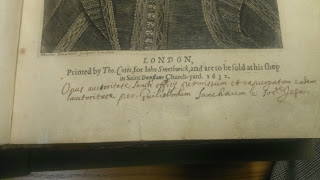 LONDON,
Printed by Tho. Cotes, for John Smethwick, and are to be sold at his shop
in Saint Dunstans Church-yard. 1632.
Opus autoritate Sancti officij permissum et expurgatum eadem
autoritate per Guilielmum Sanchæum e Soc.te Jesu